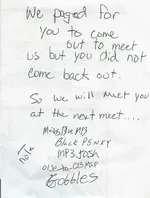 We paged for
you to come
out to meet
us but you did not
come back out.
So we will meet you
at the next meet....
MP3
Black PSNXY
MP3 Josh
Gobbles
note